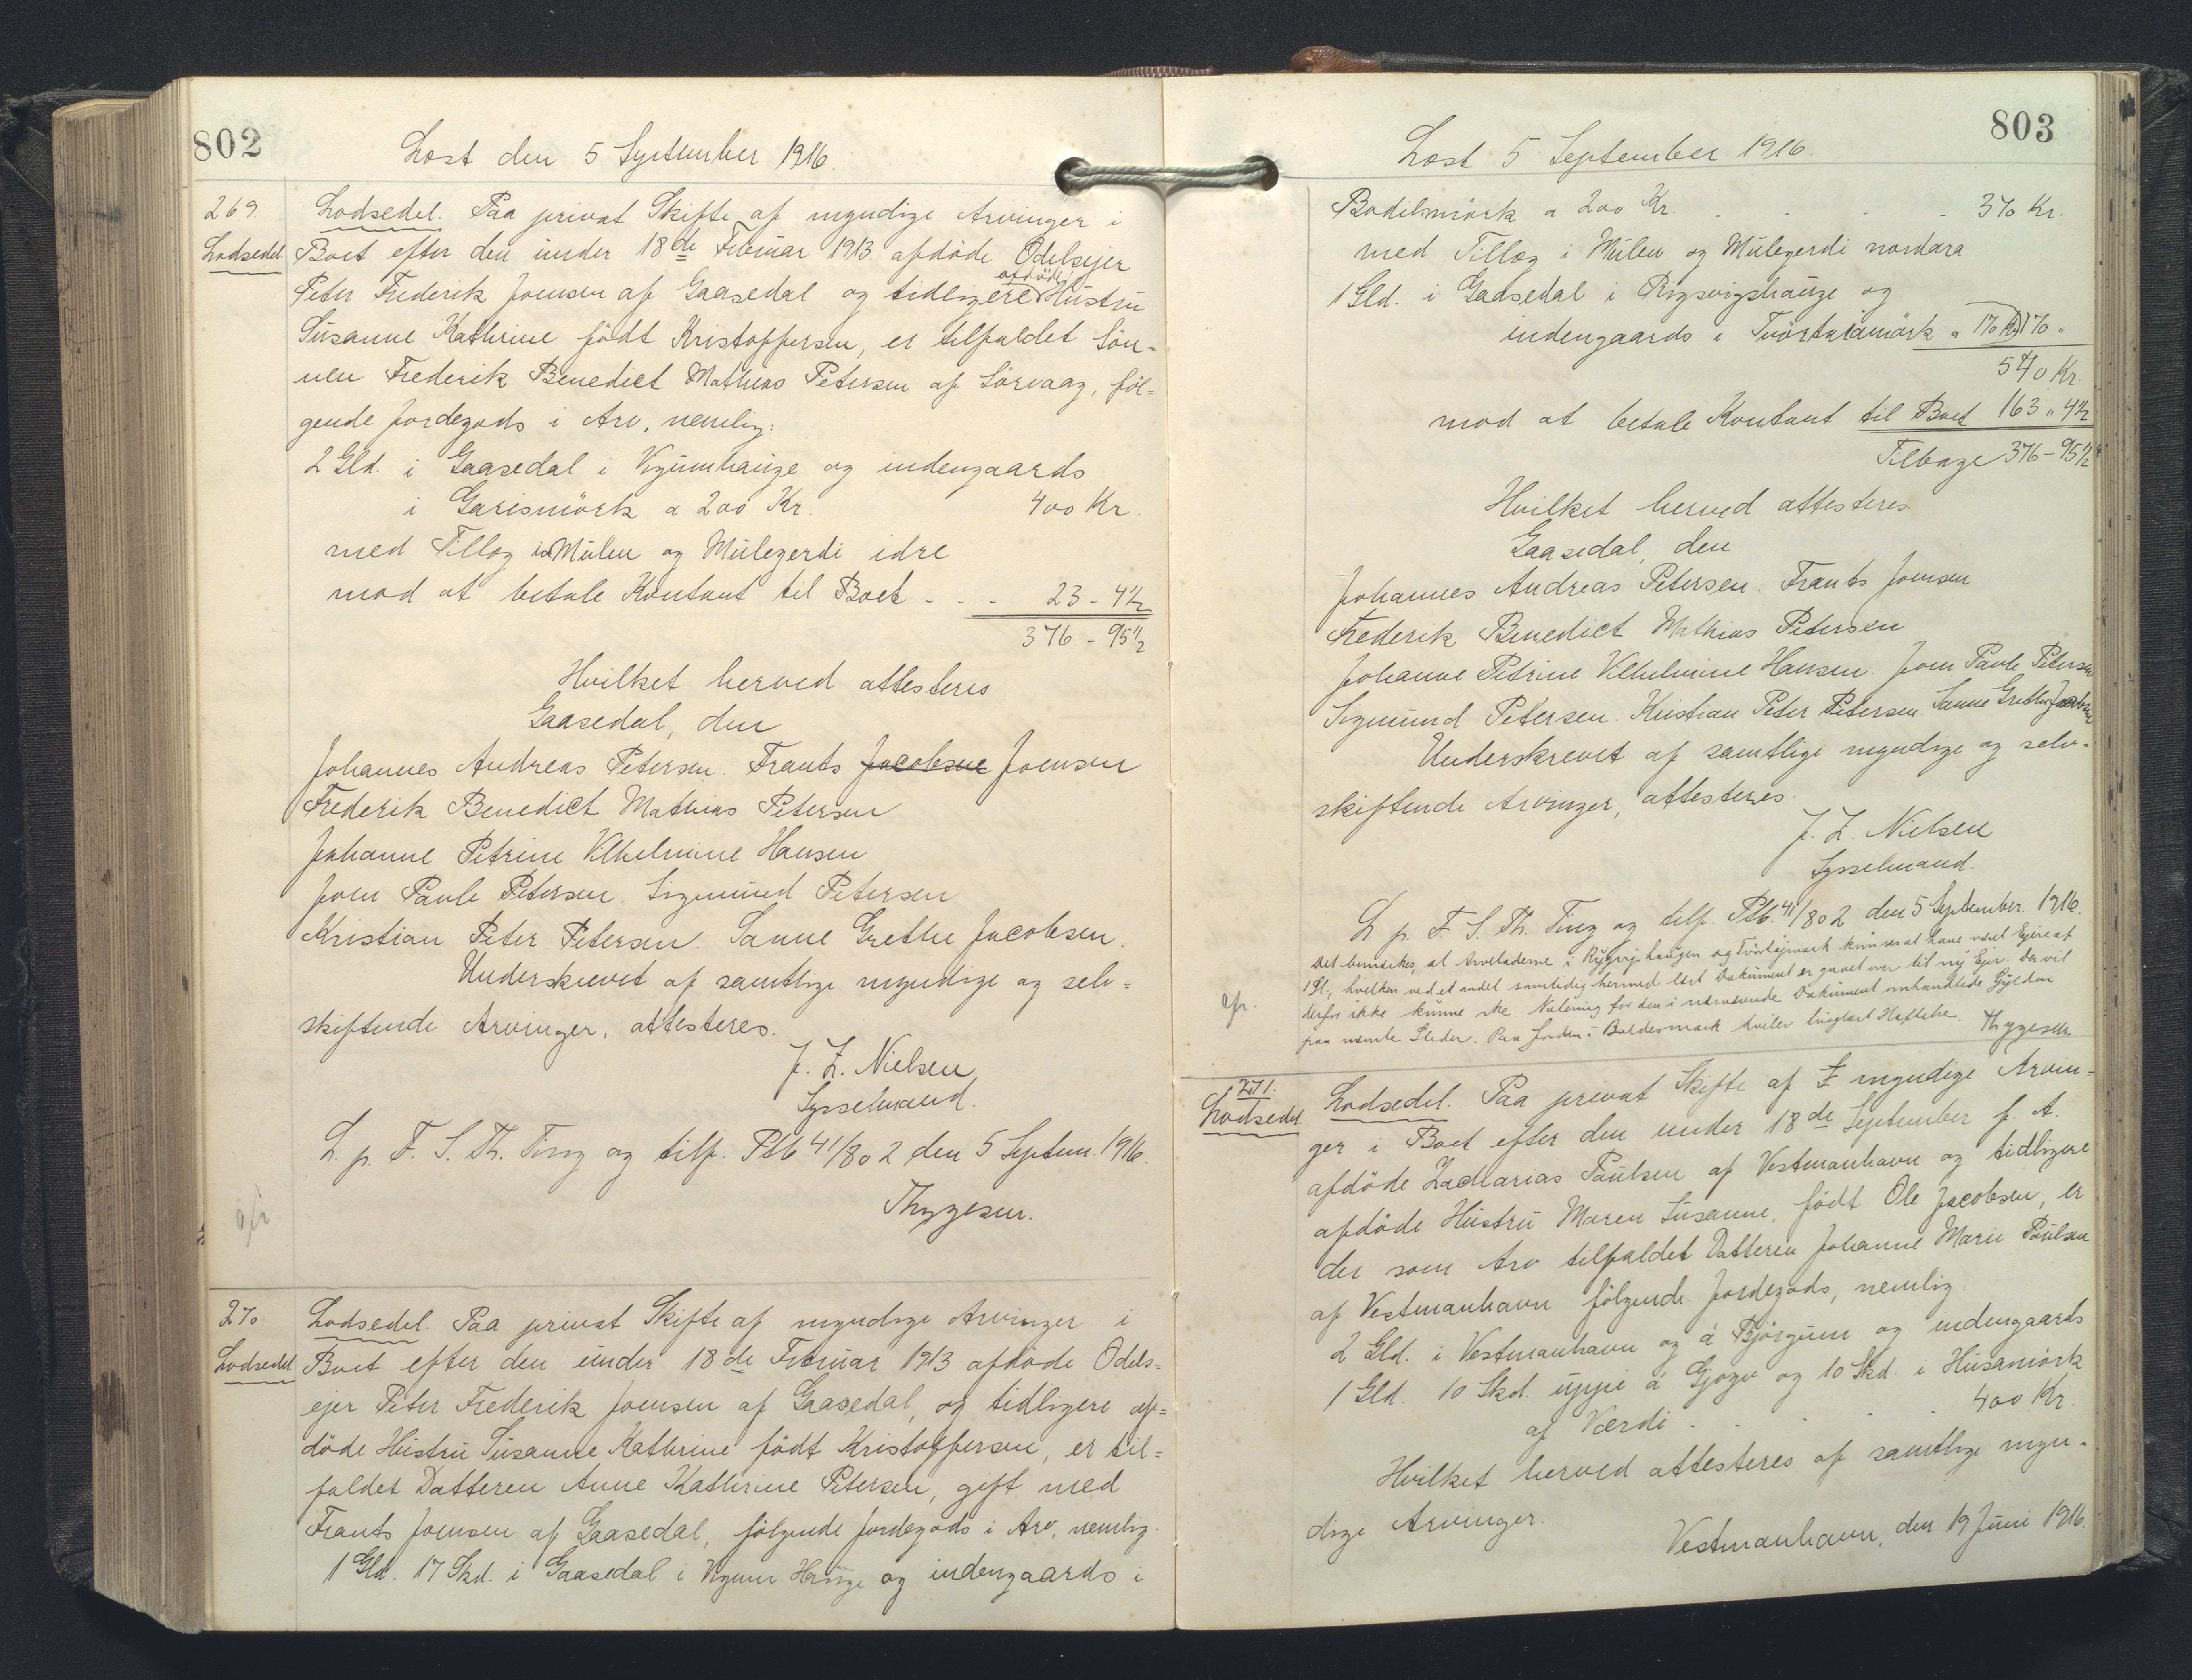 802
Læst den 5 September 1916.
269.
Lodsedel.
Lodsedel. Paa privat Skifte af myndige Arvinger i
Boet efter den under 18de Februar 1913 afdöde Odelsejer
Peter Frederik Joensen af Gaasedal og tidligere afdöde Hustru
Susanne Kathrine födt Kristoffersen, er tilfaldet Sön-
nen Frederik Benedict Mathias Petersen af Sörvaag, föl-
gende Jordegods i Arv, nemlig:
2 Gld. i Gaasedal i Vigumhauge og indengaards
i Garismörk a 200 Kr. 400 Kr.
med Tillæg i Mulen og Mulegerdi idre
mod at betale Kontant til Boet - - - 23 - 4½
376 - 95½
Hvilket herved attesteres
Gaasedal, den
Johannes Andreas Petersen. Frants Jacobsen Joensen
Frederik Benedict Mathias Petersen
Johanne Petrine Vilhelmine Hansen
Joen Paule Petersen. Sigmund Petersen
Kristian Peter Petersen. Sanne Grethe Jacobsen.
Underskrevet af samtlige myndige og selv-
skiftende Arvinger, attesteres.
J. Z. Nielsen
Sysselmand.
L. p. F. S. Th. Ting og tilf. Ptb 41/802 den 5 Septem. 1916.
Thygesen.
cfr.
270.
Lodsedel
Lodsedel. Paa privat Skifte af myndige Arvinger i
Boet efter den under 18de Februar 1913 afdöde Odels-
ejer Peter Frederik Joensen af Gaasedal, og tidligere af-
döde Hustru Susanne Kathrine födt Kristoffersen, er til-
faldet Datteren Anne Kathrine Petersen, gift med
Frants Joensen af Gaasedal, fölgende Jordegods i Arv, nemlig:
1 Gld. 17 Skd. i Gaasedal i Vigum Hauge og indengaards i
803
Læst 5 September 1916.
Bodilsmörk a 200 Kr. - - - - 370 Kr.
med Tillæg i Mulen og Mulegerdi nordara
1 Gld. i Gaasedal i Rygsvigshauge og
indengaards i a 170 Kr 170 "
540 Kr.
mod at betale Kontant til Boet 163 " 4½
Tilbage 376 - 95½
Hvilket herved attesteres
Gaasedal, den
Johannes Andreas Petersen. Frants Joensen
Frederik Benedict Mathias Petersen
Johanne Petrine Vilhelmine Hansen. Joen Paule Petersen
Sigmund Petersen. Kristian Peter Petersen. Sanne Grethe Jacobsen
Underskrevet af samtlige myndige og selv-
skiftende Arvinger, attesteres.
J. Z. Nielsen
Sysselmand.
L. p. F. S. Th. Ting og tilf. Ptb. 41/802 den 5 September 1916.
Det bemærkes, at Arveladerne i og kun ses at have været Ejere af
1 Gl., hvilken ved et andet samtidig hermed læst Dokument er gaaet over til ny Ejer. Der vil
derfor ikke kunne ske Notering for den i nærværende Dokument omhandlede Gylden
paa nævnte Steder. Paa Jorden i Boldesmark hviler tinglæst Hæftelse. Thygesen
cfr.
271.
Lodsedel
Lodsedel. Paa privat Skifte af myndige Arvin-
ger i Boet efter den under 18de September f. A.
afdöde Zacharias Paulsen af Vestmanhavn og tidligere
afdöde Hustru Maren Susanne, födt Ole Jacobsen, er
der som Arv tilfaldet Datteren Johanne Marie Paulsen
af Vestmanhavn fölgende Jordegods, nemlig:
2 Gld. i Vestmanhavn og á Björgum og indengaards
1 Gld. 10 Skd. uppi á Gjógv og 10 Skd. i Húsamörk
af Værdi - - - - - 400 Kr.
Hvilket herved attesteres af samtlige myn-
dige Arvinger.
Vestmanhavn, den 19 Juni 1916.